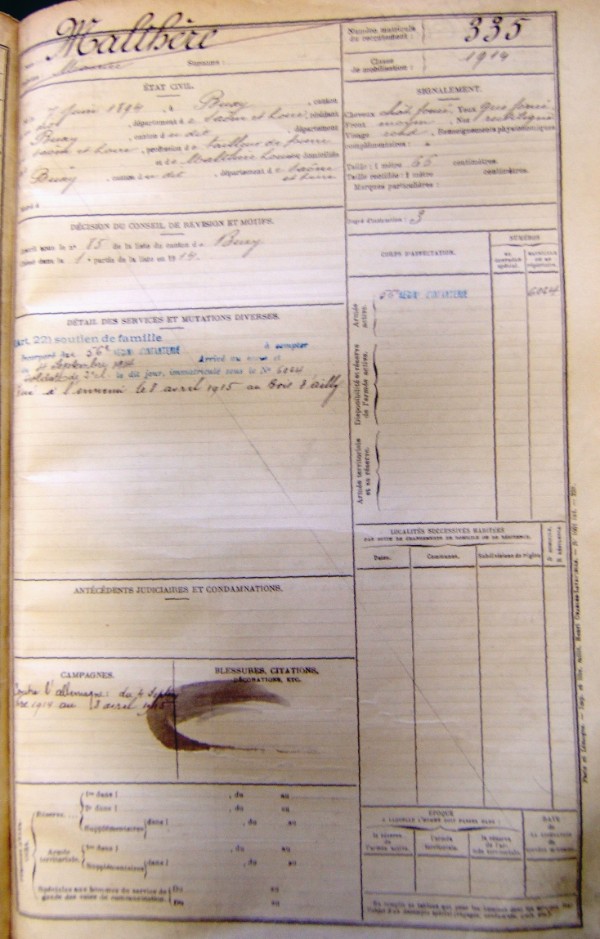 Malthère
335
Numéro matricule du recrutement :
Classe de mobilisation :
1914
Surnoms :
ÉTAT CIVIL.
7 juin 1894, à Buxy, canton
, département d e Saône et Loire, résidant
Buxy, canton d u dit, département
Saône et Loire, profession d e tailleur de pierre
et d e
domiciliés
Buxy, canton d u dit, département d e Saône
et Loire
SIGNALEMENT.
Cheveux chât foncé Yeux
Front moyen, Nez rectiligne
Visage rond, Renseignements physionomiques
complémentaires :
Taille : 1 mètre 66 centimètres.
Taille rectifiée : 1 mètre centimètres.
Marques particulières :
Degré d'instruction : 3
DÉCISION DU CONSEIL DE RÉVISION ET MOTIFS.
Inscrit sous le n° 85 de la liste du canton d e Buxy
Classé dans la 1e partie de la liste en 1914.
DÉTAIL DES SERVICES ET MUTATIONS DIVERSES.
art. 22) soutien de famille
Incorporé au 56e RÉGIMENT D'INFANTERIE à compter
4 Septembre 1914 Arrivé au corps et
soldat de 2e cl. le dit jour, immatriculé sous le N° 6024
Tué à l'ennemi le 8 avril 1915 au Bois d'ailly
CORPS D'AFFECTATION.
NUMÉROS
au contrôle spécial.
matricule ou au répertoire.
Armée active.
56e RÉGIMENT D'INFANTERIE
6024
Disponibilité et réserve de l'armée active.
Armée territoriale et sa réserve.
LOCALITÉS SUCCESSIVES HABITÉES
PAR SUITE DE CHANGEMENTS DE DOMICILE OU DE RÉSIDENCE.
Dates.
Communes.
Subdivisions de région.
D. domicile.
R. résidence.
ANTÉCÉDENTS JUDICIAIRES ET CONDAMNATIONS.
CAMPAGNES.
Contre l'allemagne : du 4 Septem
bre 1914 au 8 avril 1915
BLESSURES, CITATIONS,
DÉCORATIONS, ETC.
Réserve.
1re dans l , du au
2e dans l , du au
Supplémentaires dans l , du au
Armée territoriale.
1re dans l , du au
Supplémentaires dans l , du au
Spéciales aux hommes du service de
garde des voies de communication.
Du au
Du au
ÉPOQUE
À LAQUELLE L'HOMME DOIT PASSER DANS :
la réserve de l'armée active.
l'armée territoriale.
la réserve de l'armée territoriale.
DATE